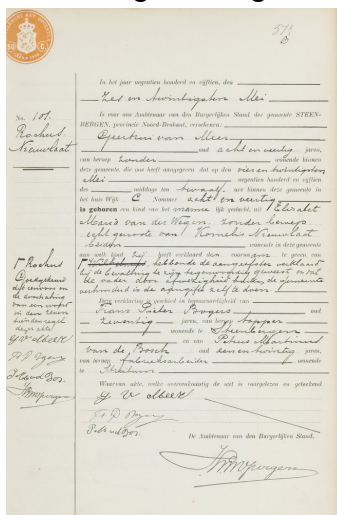 In het jaar negentien honderd en vijftien, den
Zes en twintigsten Mei
is voor ons Ambtenaar van den Burgerlijken Stand der gemeente STEEN-
BERGEN, provincie Noord-Brabant, verschenen:
No. 101.
Rochus
Nieuwlaat
Geertrui van Meer
oud acht en veertig jaren,
van beroep zonder wonende binnen
deze gemeente, die ons heeft aangegeven dat op den vier en twintigsten
Mei negentien honderd en vijftien
des middags ten twaalf ure binnen deze gemeente in
het huis Wijk C Nommer acht en veertig
is geboren een kind van het mannelijk geslacht, uit Elizabet
Maria van der Wegen, zonder beroep
echtgenoote van Kornelis Nieuwlaat
beiden wonende in deze gemeente
aan welk kind zij heeft verklaard den voornaam te geven van
Rochus
hebbende de aangeefster verklaard
bij de bevalling te zijn tegenwoordig geweest, en dat
de vader door afwezigheid buiten de gemeente
verhinderd is de aangifte zelf te doen.
Deze verklaring is geschied in tegenwoordigheid van
Frans Pieter Bogers oud
zeventig jaren, van beroep tapper
wonende te Steenbergen
en van Petrus Martinus
van de Bosch oud een en twintig jaren,
van beroep fabrieksarbeider wonende
te Stratum
Waarvan akte, welke overeenkomstig de wet is voorgelezen en geteekend
G V Meer
De Ambtenaar van den Burgerlijken Stand,
Goedgekeurd